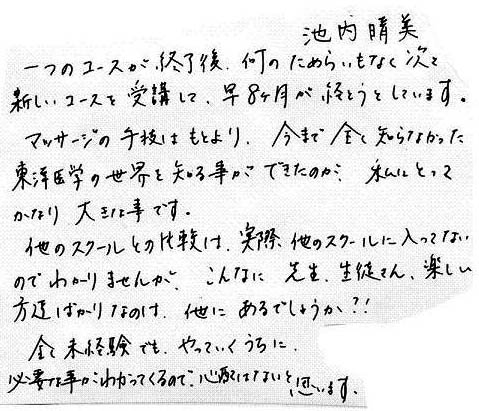 池内晴美
一つのコースが終了後、何のためらいもなく次と
新しいコースを受講して、早8ヶ月が経とうとしています。
マッサージの手技はもとより、今まで全く知らなかった
東洋医学の世界を知る事ができたのが、私にとって
かなり大きな事です。
他のスクールとの比較は、実際他のスクールに入ってない
のでわかりませんが、こんなに先生、生徒さん、楽しい
方達ばかりなのは、他にあるでしょうか?!
全く未経験でも、やっていくうちに、
必要な事がわかってくるので、心配はないと思います。